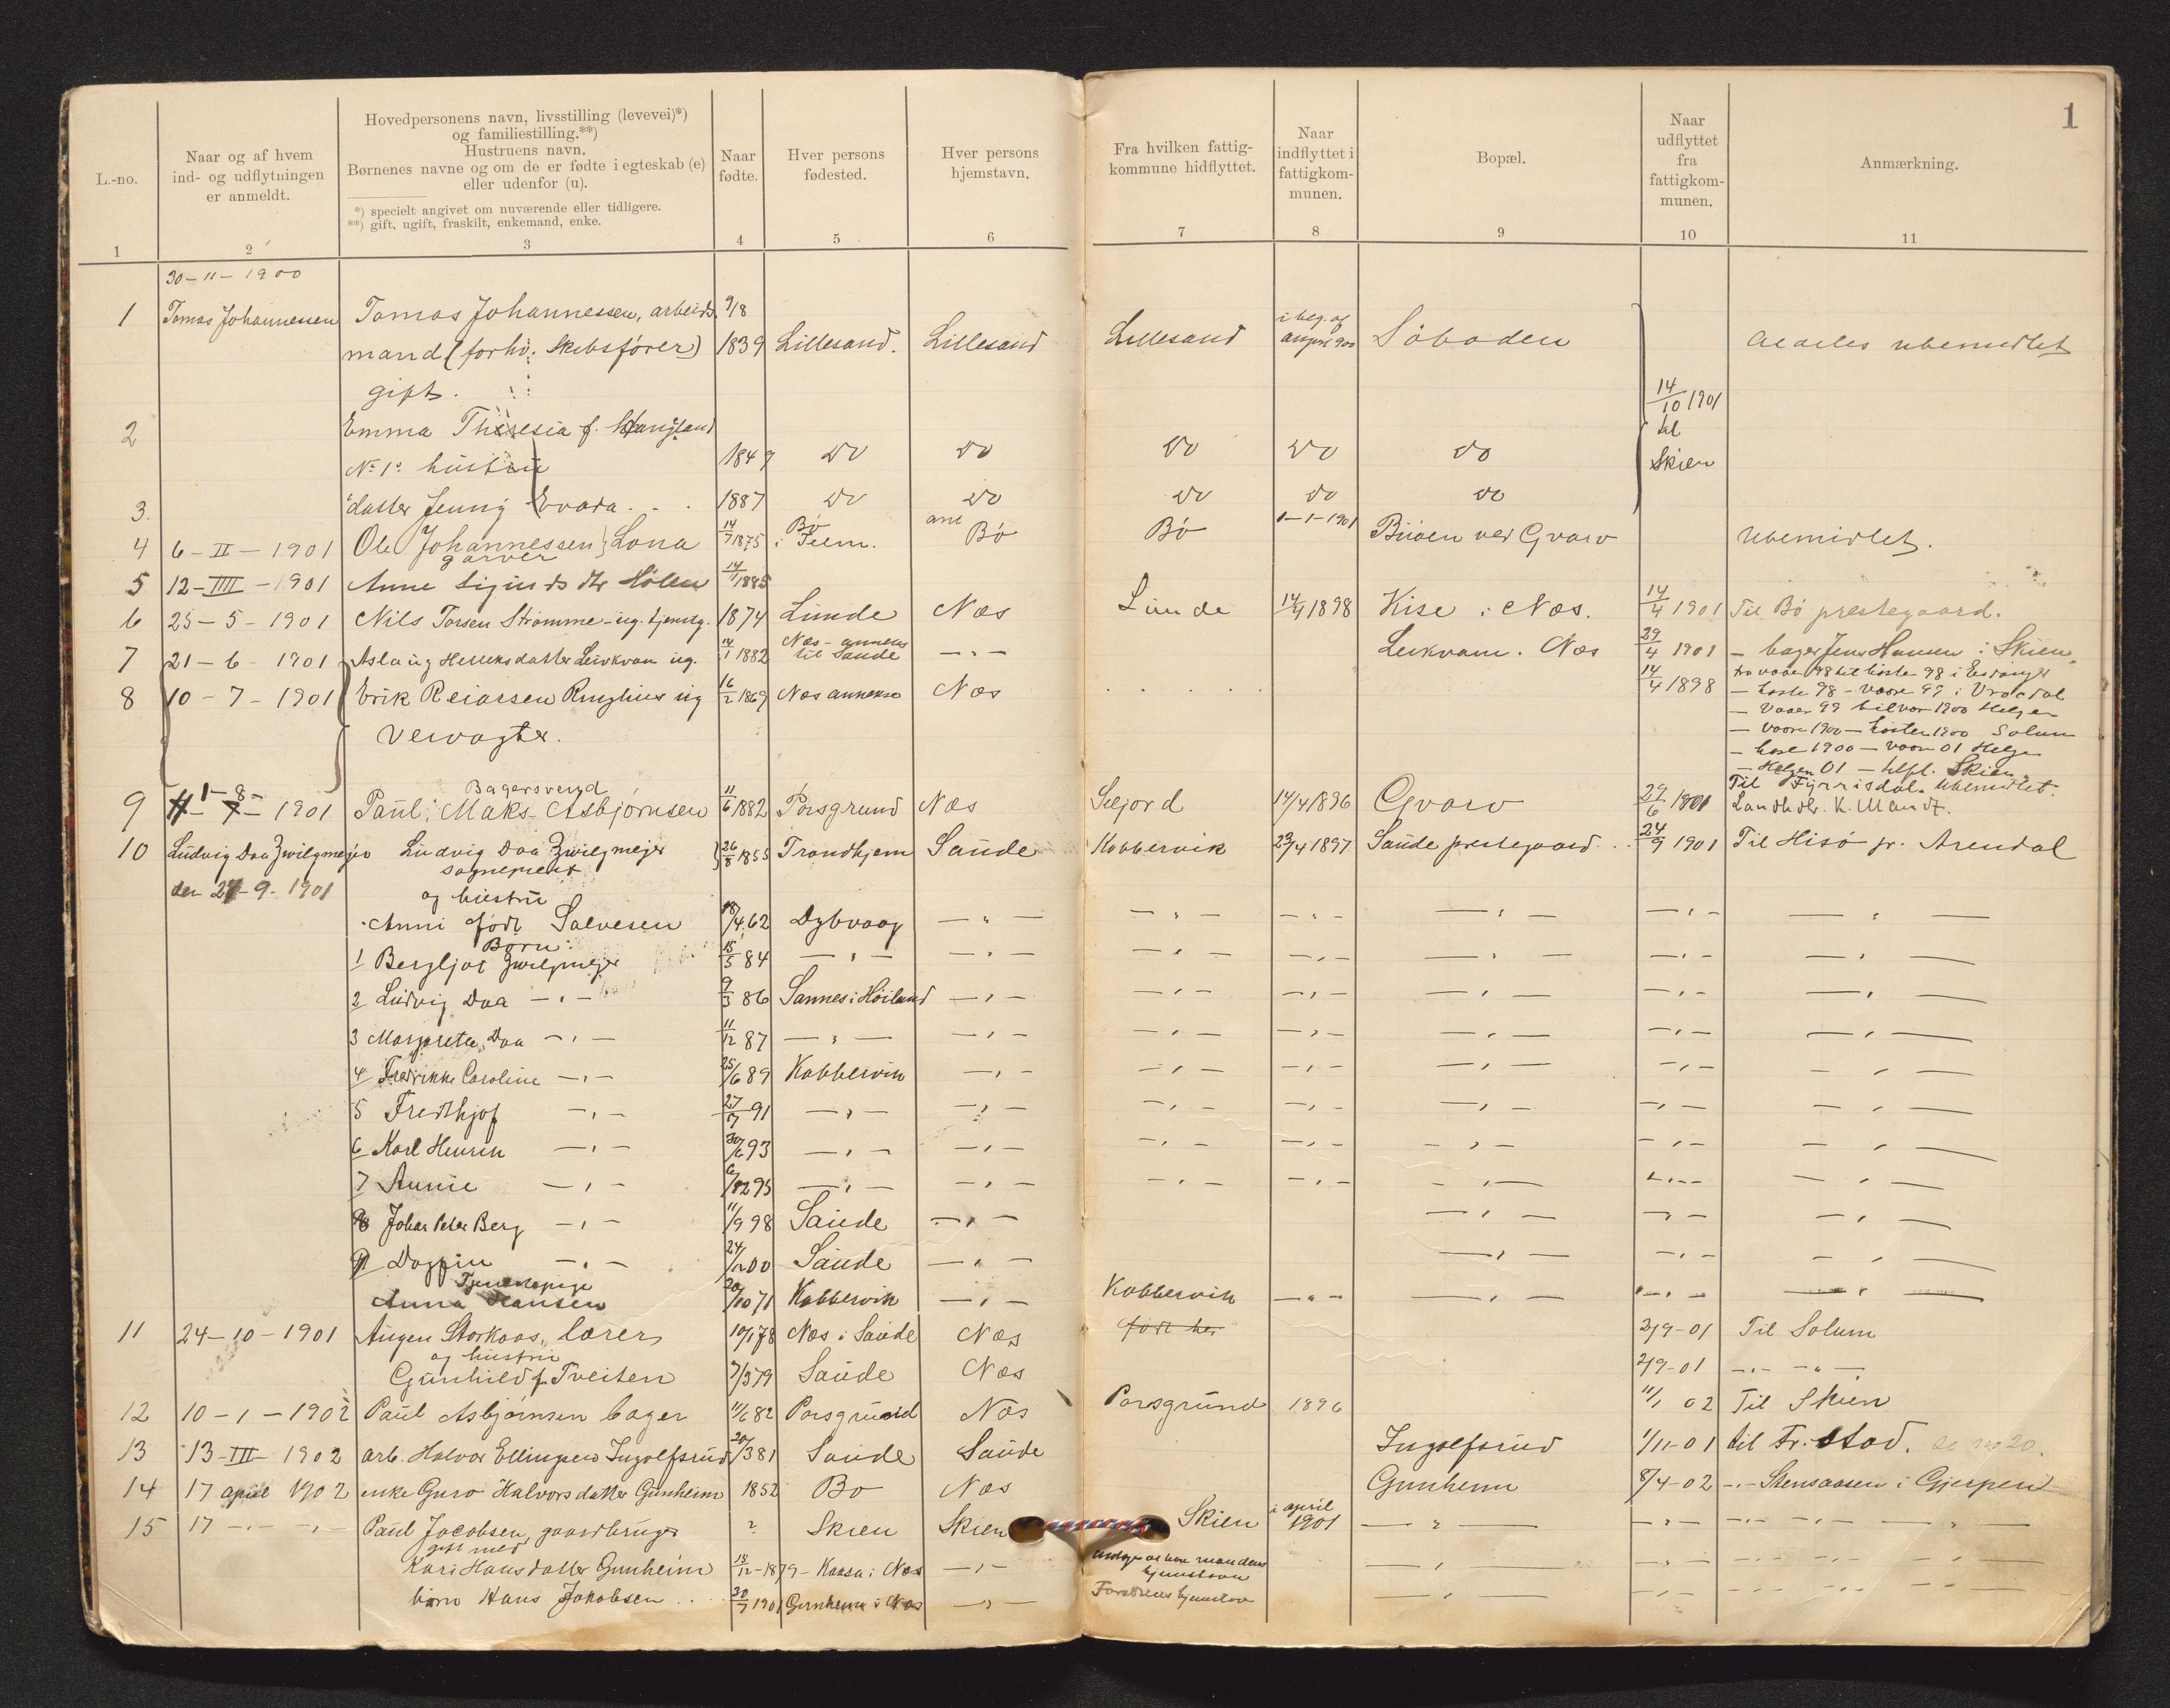 1
L.-no.
Naar og af hvem ind- og udflytningen er anmeldt.
Hovedpersonens navn, livsstilling (levevei)*) og familiestilling.**)
Hustruens navn.
Børnenes navne og om de er fødte i egteskab (e) eller udenfor (u).
*) specielt angivet om nuværende eller tidligere.
**) gift, ugift, fraskilt, enkemand, enke.
Naar fødte.
Hver persons fødested.
Hver persons hjemstavn.
Fra hvilken fattigkommune hidflyttet.
Naar indflyttet i fattigkommunen.
Bopæl.
Naar udflyttet fra fattigkommunen.
Anmærkning.
1 2 3 4 5 6 7 8 9 10 11
30-11-1900
1 Tomas Johannessen Tomas Johannessen, arbeids 9/8
mand (forhv. Skibsfører) 1839 Lillesand. Lillesand Lillesand i beg. af august 900 Søboden ubemidlet
gift.
14/10 1901 til Skien
2 Emma f.
No 1s hustru 1849 Do Do Do Do Do
3. datter Jenny 1887 Do Do Do Do Do
4 6-II-1901 Ole Johannessen Lona 14/7 1875 Bø i Telem. Bø Bø 1-1-1901 ved Gvarv Ubemidlet.
garver
5 12-IIII-1901 Anne Sjurdsdtr Hølen 14/1 1885
6 25-5-1901 Nils Torsen Strømme - ug. 1874 Lunde Næs Lunde 14/4 1898 Kise i Næs. 14/4 1901 Til Bø prestegaard.
7 21-6-1901 Aslaug Helleksdatter Leikvam ug. 14/1 1882 Næs - anneks til Saude -"- Leikvam. Næs 29/4 1901 - bager Jens Hansen i Skien
8 10-7-1901 Erik Reiarsen Ringhus ug 16/2 1869 Næs anneks Næs 14/4 1898 fra vaaren 98 til høsten 98 i Eidanger
- høste 98 - vaare 99 i Vraadal
Veivogter. - Vaaren 99 til vaar 1900 Helgen
- vaare 1900 - høsten 1900 Solum
- høst 1900 - vaaren 01 Helgen
- Helgen 01 - Skien
Bagersvend Til Fyrrisdal. Ubemidlet.
9 1-8-1901 Paul Maks Asbjørnsen 11/6 1882 Porsgrund Næs Seljord 14/4 1896 Gvarv 29/6 1901 Landhdlr. K. Mandt.
10 Ludvig Daa Zwilgmeyer Ludvig Daa Zwilgmeyer 26/8 1855 Trondhjem Saude Kobbervik 23/4 1897 Saude prestegaard 24/9 1901 Til Hisø pr. Arendal
den 24-9-1901 sogneprest
og hustru
Anni født Salvesen 18/4 62 Dybvaag -"- -"- -"- -"- -"- -"-
Børn:
1 Bergljot Zwilgmeyer 15/5 84 -"- -"- -"- -"- -"- -"- -"-
2 Ludvig Daa -"- 9/3 86 Sannes i Høiland -"- -"- -"- -"- -"- -"-
3 Margrete Daa -"- 11/12 87 -"- -"- -"- -"- -"- -"- -"-
4 Fredrikke Caroline -"- 25/6 89 Kobbervik -"- -"- -"- -"- -"- -"-
5 Fredthjof -"- 27/7 91 -"- -"- -"- -"- -"- -"- -"-
6 Karl Henrik -"- 30/6 93 -"- -"- -"- -"- -"- -"- -"-
7 Annie -"- 6/12 95 -"- -"- -"- -"- -"- -"- -"-
8 Johan Peter Berg -"- 11/9 98 Saude -"- -"- -"- -"-
9 Dagfin -"- 24/12 00 Saude -"- -"- -"- -"-
Tjenestepige
Anna Hansen 20/10 71 Kobbervik -"- Kobbervik -"- -"- -"- -"-
11 24-10-1901 Augen Storkaas, lærer 10/1 78 Næs i Saude Næs født her 2/9-01 Til Solum
og hustru
Gunhild f. Tveiten 7/3 79 Saude Næs 2/9-01 -"- -"-
12 10-1-1902 Paul Asbjørnsen bager 11/6 82 Porsgrund Næs Porsgrund 1896 11/1 02 Til Skien
13 13-III-1902 arb. Halvor Ellingsen Ingolfsrud 20/3 81 Saude Saude Ingolfsrud 1/11-01 til Fr.stad. se no 20.
14 17 april 1902 enke Guro Halvorsdatter Gunheim 1852 Bø Næs Gunheim 8/4-02 -"- Stensaasen i Gjerpen
15 17 -"- -"- Paul Jacobsen, gaardbruger ? Skien Skien Skien i april 1901 -"- -"- -"- -"-
gift med
Kari Hansdatter Gunheim 15/12-1879 - Kaasa i Næs -"- mandens hjemstavn -"- -"- -"-
barn Hans Jakobsen 30/7 1901 Gunheim i Næs -"- Forældrenes hjemstavn -"- -"- -"-